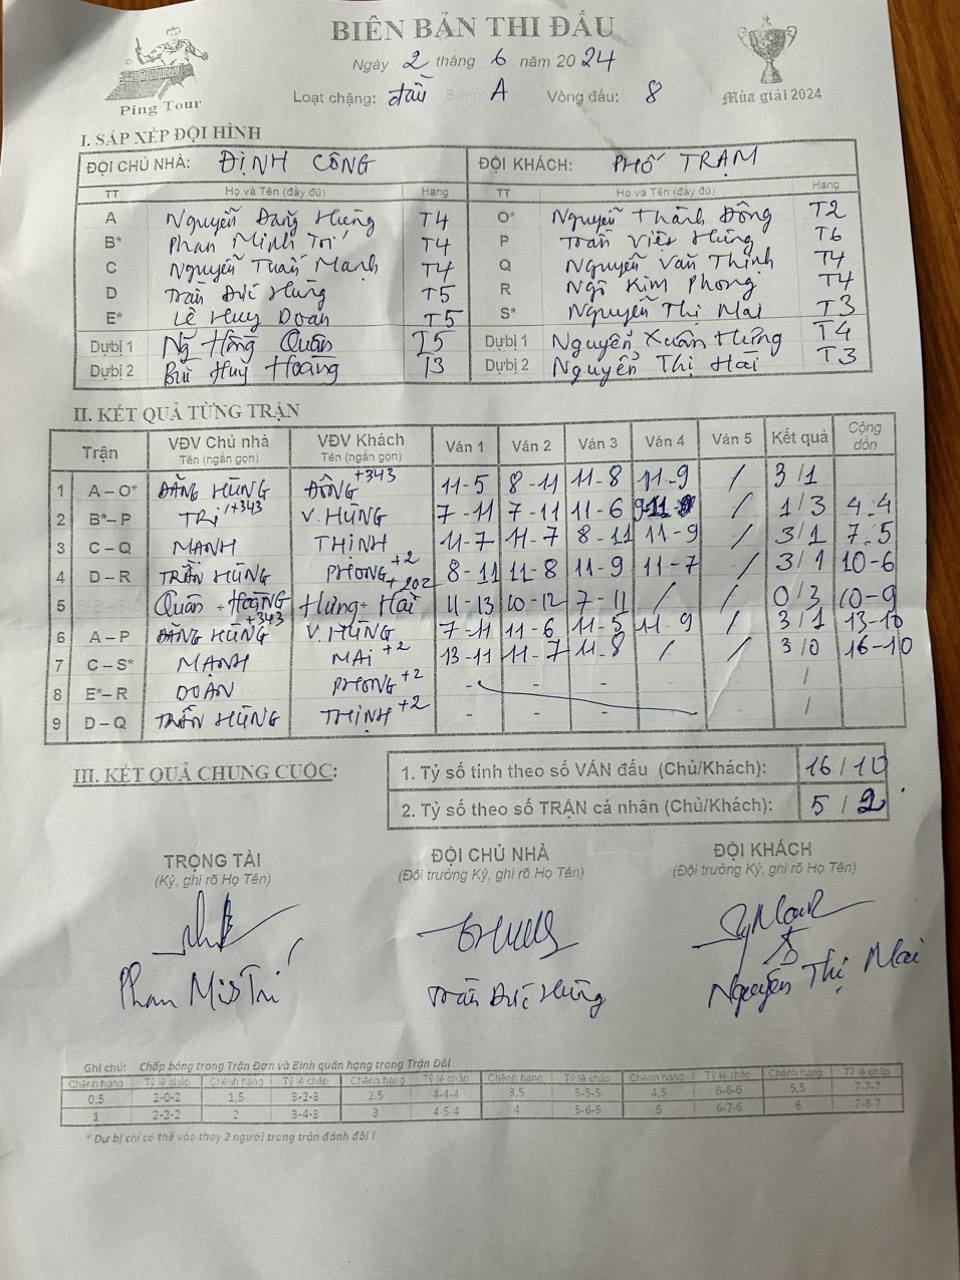 BIÊN BẢN THI ĐẤU
Ping Tour
Ngày 2 tháng 6 năm 2024
Loạt chặng: đầu Bảng: A Vòng đấu: 8
Mùa giải 2024
I. SẮP XẾP ĐỘI HÌNH
ĐỘI CHỦ NHÀ: ĐỊNH CÔNG ĐỘI KHÁCH: PHỐ TRẠM
TT Họ và Tên (đầy đủ) Hạng TT Họ và Tên (đầy đủ) Hạng
A Nguyễn Đăng Hưng T4 O* Nguyễn Thành Đông T2
B* Phan Minh Trí T4 P Trần Việt Hùng T6
C Nguyễn Tuấn Mạnh T4 Q Nguyễn Văn Thịnh T4
D Trần Đức Hùng T5 R Ngô Kim Phong T4
E* Lê Huy Doan T5 S* Nguyễn Thị Mai T3
Dự bị 1 Ng Hồng Quân T5 Dự bị 1 Nguyễn Xuân Hưng T4
Dự bị 2 Bùi Huy Hoàng T3 Dự bị 2 Nguyễn Thị Hài T3
II. KẾT QUẢ TỪNG TRẬN
Trận VĐV Chủ nhà Tên (ngắn gọn) VĐV Khách Tên (ngắn gọn) Ván 1 Ván 2 Ván 3 Ván 4 Ván 5 Kết quả Cộng dồn
1 A – O* ĐĂNG HÙNG ĐÔNG +343 11-5 8-11 11-8 11-9 / 3/1
2 B* – P TRÍ +343 V. HÙNG 7-11 7-11 11-6 9-11 / 1/3 4-4
3 C – Q MẠNH THỊNH 11-7 11-7 8-11 11-9 / 3/1 7-5
4 D – R TRẦN HÙNG PHONG +2 8-11 11-8 11-9 11-7 / 3/1 10-6
5 Quân + Hoàng Hưng + Hài +202 11-13 10-12 7-11 / / 0/3 10-9
6 A – P ĐĂNG HÙNG +343 V. HÙNG 7-11 11-6 11-5 11-9 / 3/1 13-10
7 C – S* MẠNH MAI +2 13-11 11-7 11-8 / / 3/0 16-10
8 E* – R DOAN PHONG +2 - - - /
9 D – Q TRẦN HÙNG THỊNH +2 - - - /
III. KẾT QUẢ CHUNG CUỘC:
1. Tỷ số tính theo số VÁN đấu (Chủ/Khách): 16/10
2. Tỷ số theo số TRẬN cá nhân (Chủ/Khách): 5/2
TRỌNG TÀI ĐỘI CHỦ NHÀ ĐỘI KHÁCH
(Ký, ghi rõ Họ Tên) (Đội trưởng Ký, ghi rõ Họ Tên) (Đội trưởng Ký, ghi rõ Họ Tên)
Phan Minh Trí Trần Đức Hùng Nguyễn Thị Mai
Ghi chú: Chấp bóng trong Trận Đơn và Bình quân hạng trong Trận Đôi
Chênh hạng Tỷ lệ chấp Chênh hạng Tỷ lệ chấp Chênh hạng Tỷ lệ chấp Chênh hạng Tỷ lệ chấp Chênh hạng Tỷ lệ chấp Chênh hạng Tỷ lệ chấp
0,5 2-0-2 1,5 3-2-3 2,5 4-4-4 3,5 5-5-5 4,5 6-6-6 5,5 7-7-7
1 2-2-2 2 3-4-3 3 4-5-4 4 5-6-5 5 6-7-6 6 7-8-7
* Dự bị chỉ có thể vào thay 2 người trong trận đánh đôi !